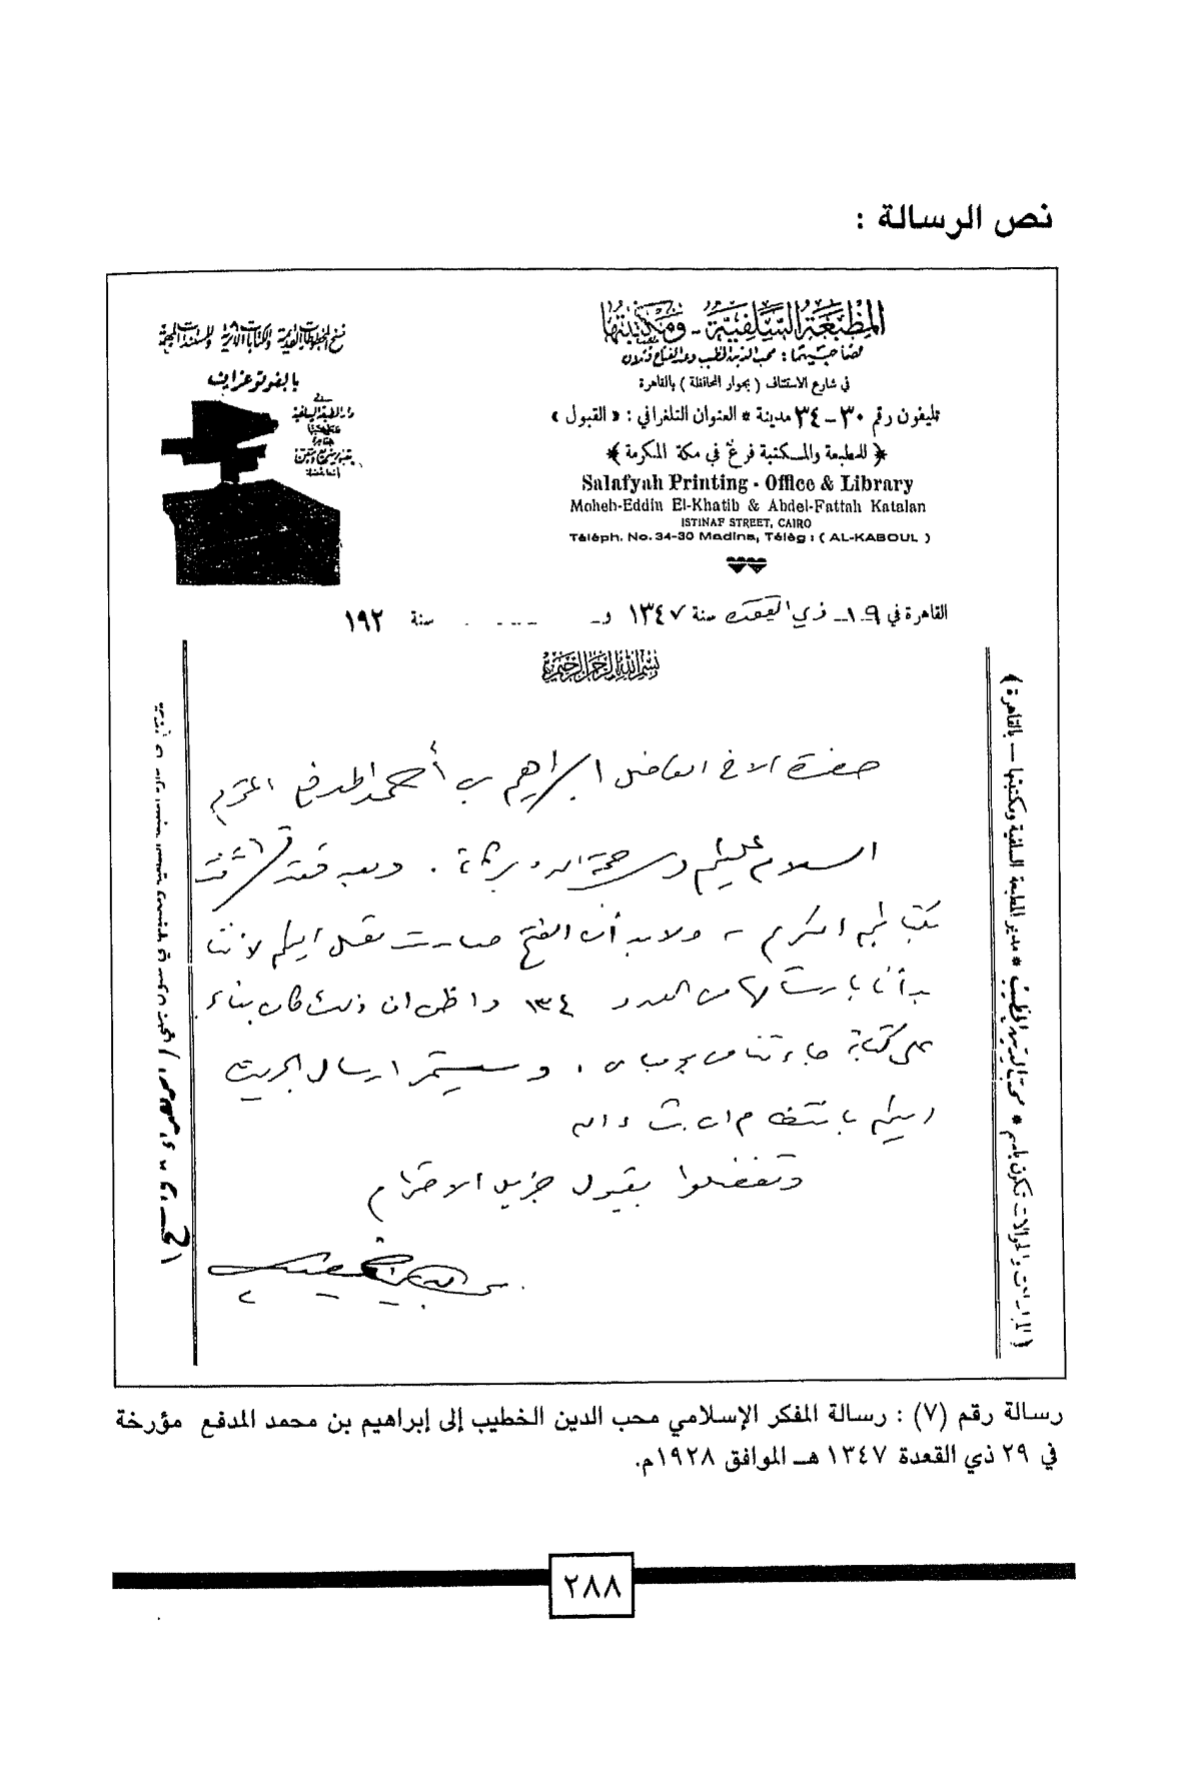 نص الرسالة :
المطبعة السلفية - ومكتبتها
لصاحبيهما : محب الدين الخطيب وعبد الفتاح قتلان
في شارع الاستئناف ( بجوار المحافظة ) بالقاهرة
تليفون رقم ٣٠ – ٣٤ مدينة * العنوان التلغرافي : « القبول »
﴿ للمطبعة والمكتبة فرع في مكة المكرمة ﴾
Salafyah Printing - Office & Library
Moheb-Eddin El-Khatib & Abdel-Fattah Katalan
ISTINAF STREET, CAIRO
Téléph. No. 34-30 Madina, Télèg : ( AL-KABOUL )
بالفوتوغراف
القاهرة في ١٩ ذي القعدة سنة ١٣٤٧ و سنة ١٩٢
بسم الله الرحمن الرحيم
حضرة الاخ الفاضل ابراهيم بن أحمد المدفع المحترم
السلام عليكم ورحمة الله وبركاته . وبعد فقد تشرفت
بكتابكم الكريم - ولابد أن الفتح صارت تصل اليكم لأننا
بدأنا بارسالها من العدد ١٣٤ واظن ان ذلك كان بناء
على كتابة جاءتنا من . وسيستمر ارسال الجريدة
اليكم بانتظام ان شاء الله
وتفضلوا بقبول جزيل الاحترام
محب الدين الخطيب
( المراسلات والحوالات تكون باسم * محب الدين الخطيب * مدير المطبعة السلفية ومكتبتها — بالقاهرة )
رسالة رقم (٧) : رسالة المفكر الإسلامي محب الدين الخطيب إلى إبراهيم بن محمد المدفع مؤرخة
في ٢٩ ذي القعدة ١٣٤٧ هـ الموافق ١٩٢٨م.
٢٨٨